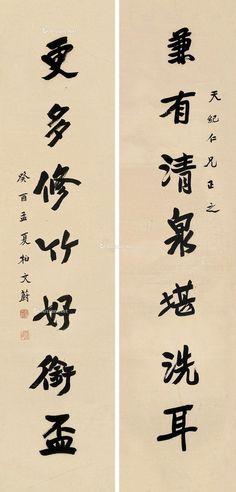 天紀仁兄正之
兼有清泉堪洗耳
更多修竹好銜盃
癸酉孟夏柏文蔚